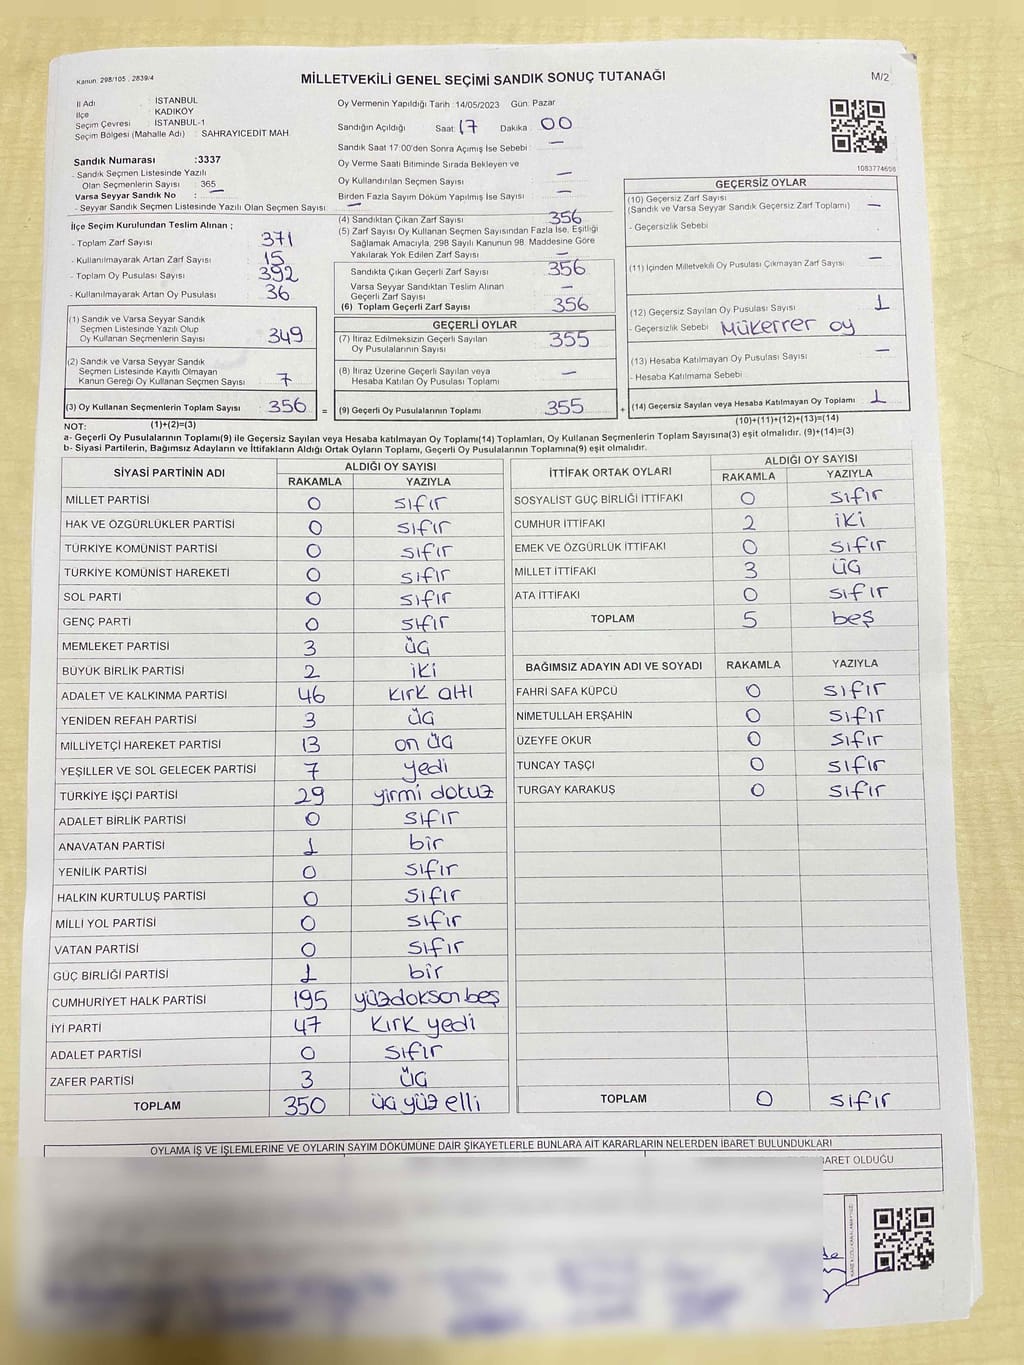 Kanun. 298/105 , 2839/4
MİLLETVEKİLİ GENEL SEÇİMİ SANDIK SONUÇ TUTANAĞI
M/2
İl Adı İSTANBUL
İlçe KADIKÖY
Seçim Çevresi İSTANBUL-1
Seçim Bölgesi (Mahalle Adı) : SAHRAYICEDİT MAH.
Sandık Numarası :3337
- Sandık Seçmen Listesinde Yazılı
Olan Seçmenlerin Sayısı : 365
Varsa Seyyar Sandık No : —
- Seyyar Sandık Seçmen Listesinde Yazılı Olan Seçmen Sayısı : —
Oy Vermenin Yapıldığı Tarih :14/05/2023 Gün: Pazar
Sandığın Açıldığı Saat 17 Dakika 00
Sandık Saat 17:00'den Sonra Açımış İse Sebebi : —
Oy Verme Saati Bitiminde Sırada Bekleyen ve
Oy Kullandırılan Seçmen Sayısı —
Birden Fazla Sayım Döküm Yapılmış İse Sayısı —
1083774608
İlçe Seçim Kurulundan Teslim Alınan ;
- Toplam Zarf Sayısı 371
- Kullanılmayarak Artan Zarf Sayısı 15
- Toplam Oy Pusulası Sayısı 392
- Kullanılmayarak Artan Oy Pusulası 36
(1) Sandık ve Varsa Seyyar Sandık
Seçmen Listesinde Yazılı Olup
Oy Kullanan Seçmenlerin Sayısı 349
(2) Sandık ve Varsa Seyyar Sandık
Seçmen Listesinde Kayıtlı Olmayan
Kanun Gereği Oy Kullanan Seçmen Sayısı 7
(3) Oy Kullanan Seçmenlerin Toplam Sayısı 356 =
(1)+(2)=(3)
(4) Sandıktan Çıkan Zarf Sayısı 356
(5) Zarf Sayısı Oy Kullanan Seçmen Sayısından Fazla İse, Eşitliği
Sağlamak Amacıyla, 298 Sayılı Kanunun 98. Maddesine Göre
Yakılarak Yok Edilen Zarf Sayısı —
Sandıkta Çıkan Geçerli Zarf Sayısı 356
Varsa Seyyar Sandıktan Teslim Alınan
Geçerli Zarf Sayısı —
(6) Toplam Geçerli Zarf Sayısı 356
GEÇERLİ OYLAR
(7) İtiraz Edilmeksizin Geçerli Sayılan
Oy Pusulalarının Sayısı 355
(8) İtiraz Üzerine Geçerli Sayılan veya
Hesaba Katılan Oy Pusulası Toplamı —
(9) Geçerli Oy Pusulalarının Toplamı 355 +
GEÇERSİZ OYLAR
(10) Geçersiz Zarf Sayısı
(Sandık ve Varsa Seyyar Sandık Geçersiz Zarf Toplamı) —
- Geçersizlik Sebebi :
(11) İçinden Milletvekili Oy Pusulası Çıkmayan Zarf Sayısı —
(12) Geçersiz Sayılan Oy Pusulası Sayısı 1
- Geçersizlik Sebebi : Mükerrer oy
(13) Hesaba Katılmayan Oy Pusulası Sayısı —
- Hesaba Katılmama Sebebi :
(14) Geçersiz Sayılan veya Hesaba Katılmayan Oy Toplamı 1
(10)+(11)+(12)+(13)=(14)
NOT:
a- Geçerli Oy Pusulalarının Toplamı(9) ile Geçersiz Sayılan veya Hesaba katılmayan Oy Toplamı(14) Toplamları, Oy Kullanan Seçmenlerin Toplam Sayısına(3) eşit olmalıdır. (9)+(14)=(3)
b- Siyasi Partilerin, Bağımsız Adayların ve İttifakların Aldığı Ortak Oyların Toplamı, Geçerli Oy Pusulalarının Toplamına(9) eşit olmalıdır.
SİYASİ PARTİNİN ADI ALDIĞI OY SAYISI
RAKAMLA YAZIYLA
MİLLET PARTİSİ 0 sıfır
HAK VE ÖZGÜRLÜKLER PARTİSİ 0 sıfır
TÜRKİYE KOMÜNİST PARTİSİ 0 sıfır
TÜRKİYE KOMÜNİST HAREKETİ 0 sıfır
SOL PARTİ 0 sıfır
GENÇ PARTİ 0 sıfır
MEMLEKET PARTİSİ 3 üç
BÜYÜK BİRLİK PARTİSİ 2 iki
ADALET VE KALKINMA PARTİSİ 46 kırk altı
YENİDEN REFAH PARTİSİ 3 üç
MİLLİYETÇİ HAREKET PARTİSİ 13 on üç
YEŞİLLER VE SOL GELECEK PARTİSİ 7 yedi
TÜRKİYE İŞÇİ PARTİSİ 29 yirmi dokuz
ADALET BİRLİK PARTİSİ 0 sıfır
ANAVATAN PARTİSİ 1 bir
YENİLİK PARTİSİ 0 sıfır
HALKIN KURTULUŞ PARTİSİ 0 sıfır
MİLLİ YOL PARTİSİ 0 sıfır
VATAN PARTİSİ 0 sıfır
GÜÇ BİRLİĞİ PARTİSİ 1 bir
CUMHURİYET HALK PARTİSİ 195 yüzdoksan beş
İYİ PARTİ 47 kırk yedi
ADALET PARTİSİ 0 sıfır
ZAFER PARTİSİ 3 üç
TOPLAM 350 üç yüz elli
İTTİFAK ORTAK OYLARI ALDIĞI OY SAYISI
RAKAMLA YAZIYLA
SOSYALİST GÜÇ BİRLİĞİ İTTİFAKI 0 sıfır
CUMHUR İTTİFAKI 2 iki
EMEK VE ÖZGÜRLÜK İTTİFAKI 0 sıfır
MİLLET İTTİFAKI 3 üç
ATA İTTİFAKI 0 sıfır
TOPLAM 5 beş
BAĞIMSIZ ADAYIN ADI VE SOYADI RAKAMLA YAZIYLA
FAHRİ SAFA KÜPCÜ 0 sıfır
NİMETULLAH ERŞAHİN 0 sıfır
ÜZEYFE OKUR 0 sıfır
TUNCAY TAŞÇI 0 sıfır
TURGAY KARAKUŞ 0 sıfır
TOPLAM 0 sıfır
OYLAMA İŞ VE İŞLEMLERİNE VE OYLARIN SAYIM DÖKÜMÜNE DAİR ŞİKAYETLERLE BUNLARA AİT KARARLARIN NELERDEN İBARET BULUNDUKLARI
BARET OLDUĞU